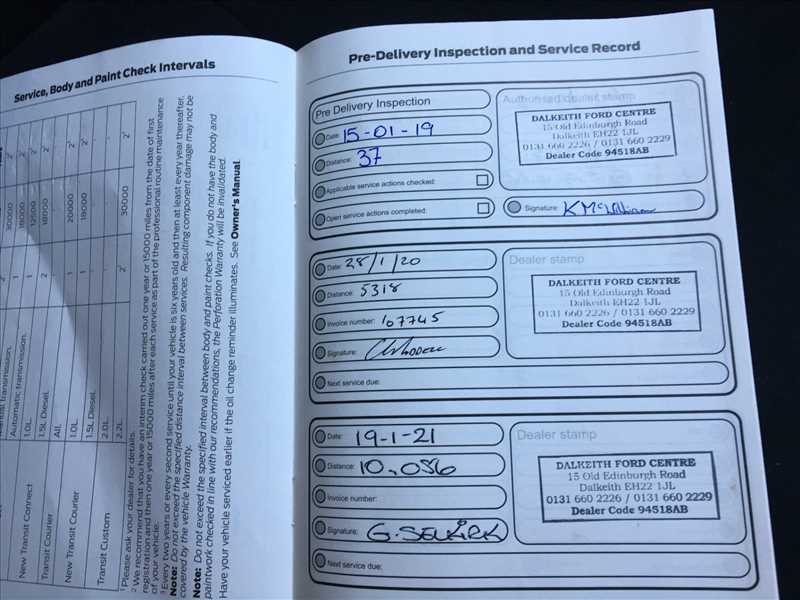 Service, Body and Paint Check Intervals
30000 2
18000 2
12500 2
18000 2
20000 2
18000 2
30000 2
Automatic transmission.
1.0L.
1.5L Diesel.
All.
1.0L
1.5L Diesel.
2.0L
2.2L
New Transit Connect
Transit Courier
New Transit Courier
Transit Custom
1 Please ask your dealer for details.
2 We recommend that you have an interim check carried out one year or 15000 miles from the date of first
registration and then one year or 15000 miles after each service as part of the professional routine maintenance
of your vehicle.
3 Every two years or every second service until your vehicle is six years old and then at least every year thereafter.
Note: Do not exceed the specified distance interval between services. Resulting component damage may not be
covered by the vehicle Warranty.
Note: Do not exceed the specified interval between body and paint checks. If you do not have the body and
paintwork checked in line with our recommendations, the Perforation Warranty will be invalidated.
Have your vehicle serviced earlier if the oil change reminder illuminates. See Owner's Manual.
Pre-Delivery Inspection and Service Record
Pre Delivery Inspection
Date: 15-01-19
Distance: 37
Applicable service actions checked:
Open service actions completed:
Authorised dealer stamp
DALKEITH FORD CENTRE
15 Old Edinburgh Road
Dalkeith EH22 1JL
0131 660 2226 / 0131 660 2229
Dealer Code 94518AB
Signature: K McWilliam
Date: 28/1/20
Distance: 5318
Invoice number: 107745
Signature:
Next service due:
Dealer stamp
DALKEITH FORD CENTRE
15 Old Edinburgh Road
Dalkeith EH22 1JL
0131 660 2226 / 0131 660 2229
Dealer Code 94518AB
Date: 19-1-21
Distance: 10,056
Invoice number:
Signature: G. SELKIRK
Next service due:
Dealer stamp
DALKEITH FORD CENTRE
15 Old Edinburgh Road
Dalkeith EH22 1JL
0131 660 2226 / 0131 660 2229
Dealer Code 94518AB